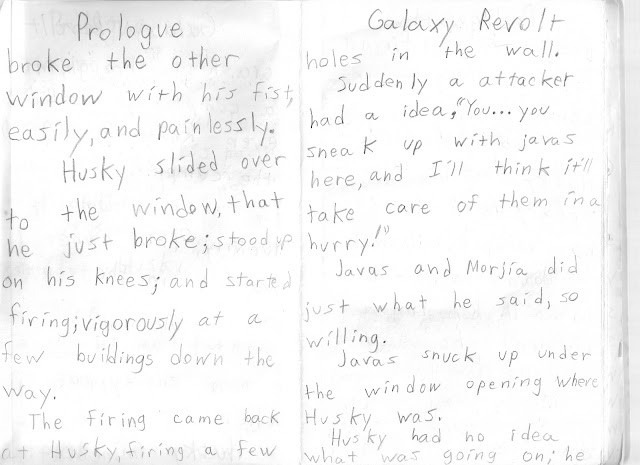 Prologue
broke the other
window with his fist,
easily, and painlessly.
Husky slided over
to the window, that
he just broke; stood up
on his knees; and started
firing; vigorously at a
few buildings down the
way.
The firing came back
at Husky, firing a few
Galaxy Revolt
holes in the wall.
Suddenly a attacker
had a idea, "You... you
sneak up with javas
here, and I'll think it'll
take care of them in a
hurry!"
Javas and Morjia did
just what he said, so
willing.
Javas snuck up under
the window opening where
Husky was.
Husky had no idea
what was going on; he